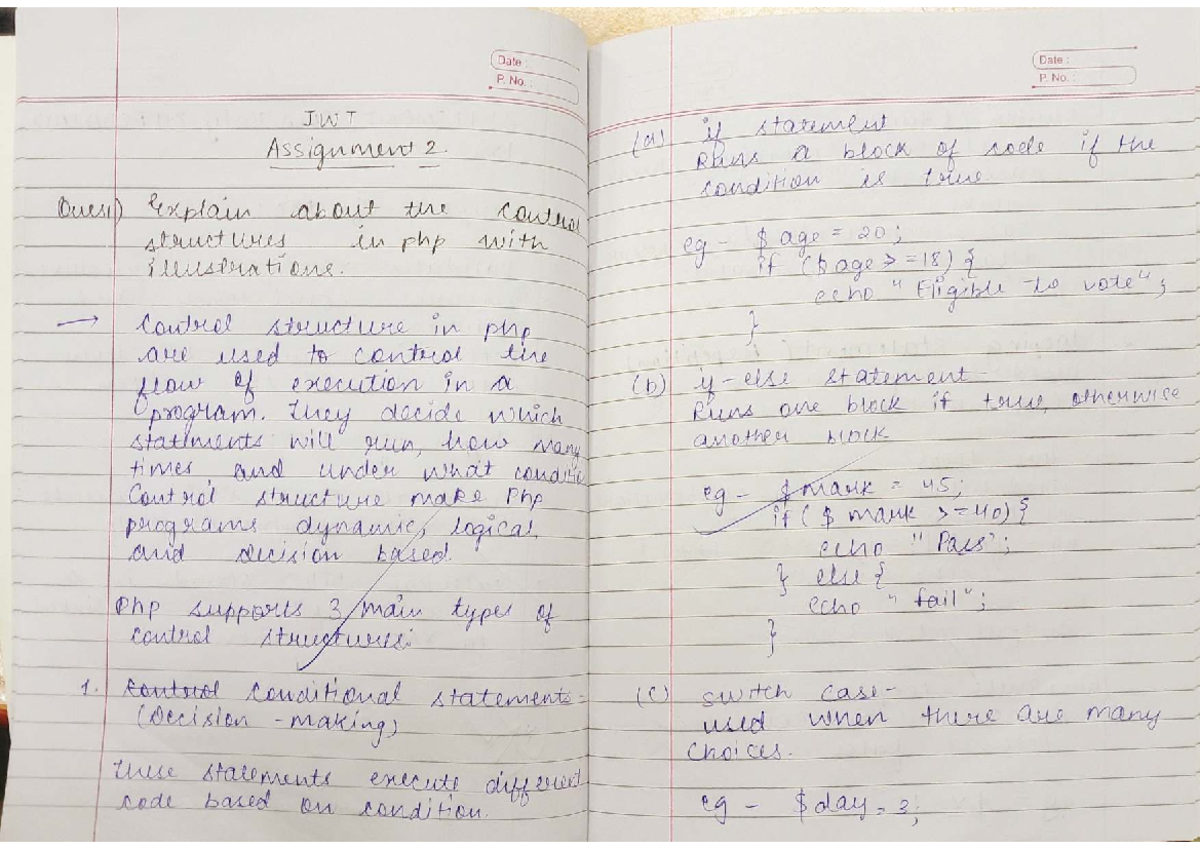 Date :
P. No. :
IWT
Assignment 2.
Ques1) Explain about the control
structures in php with
illustrations.
→ Control structure in php
are used to control the
flow of execution in a
program. They decide which
statments will run, how many
times and under what conditio
Control structure make Php
programs dynamic, logical
and decision based.
Php supports 3 main types of
control structures:
1. Control Conditional statements-
(Decision - making)
These statements execute different
code based on condition.
Date :
P. No. :
(a) if statement
Runs a block of code if the
condition is true
eg - $ age = 20;
if ($ age >=18) {
echo "Eligible to vote";
}
(b) if-else statement-
Runs one block if true, otherwise
another block
eg - $ mark = 45;
if ($ mark >=40) {
echo "Pass";
} else {
echo "fail";
}
(c) switch case-
used when there are many
choices.
eg - $day = 3;